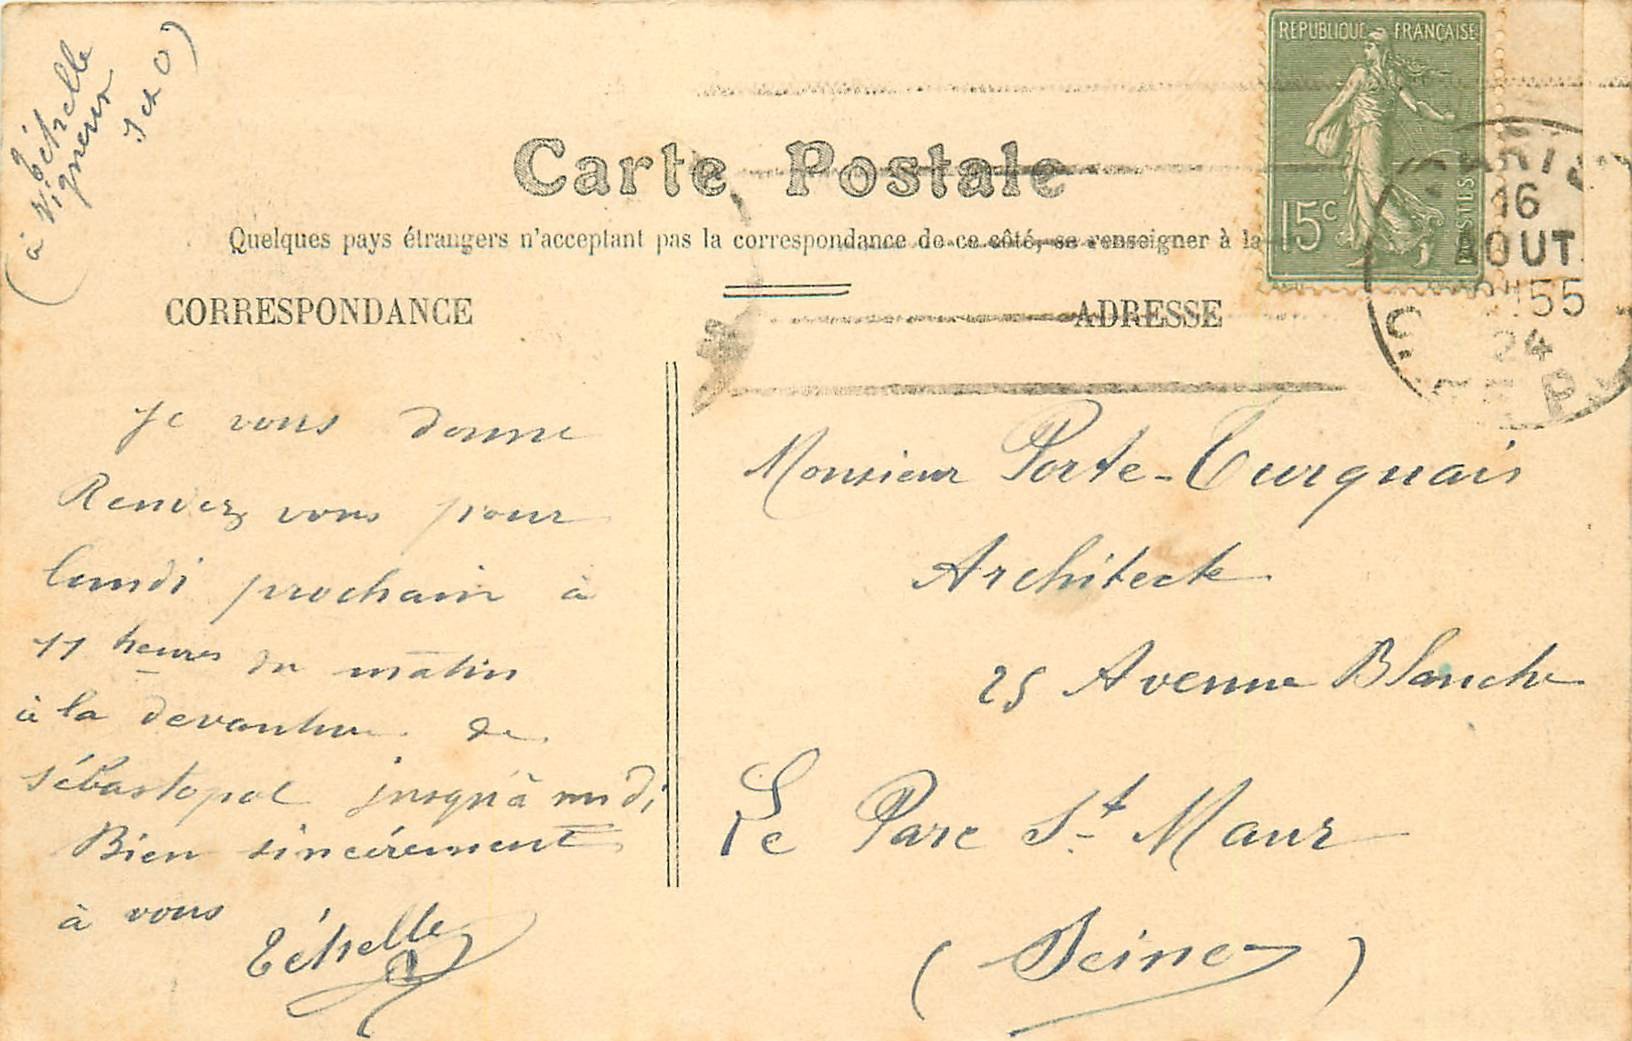 Échelle
à Vigneux
S et O)
Carte Postale
Quelques pays étrangers n'acceptant pas la correspondance de ce côté, se renseigner à la
CORRESPONDANCE
ADRESSE
REPUBLIQUE FRANÇAISE
15c
POSTES
PARIS
16
AOUT
55
24
Je vous donne
Rendez vous pour
lundi prochain à
11 heures du matin
à la devanture de
Sébastopol jusqu'à midi
Bien sincérement
à vous
Échelle
Monsieur Porte-Turquais
Architecte
25 Avenue Blanche
Le Parc St Maur
(Seine)